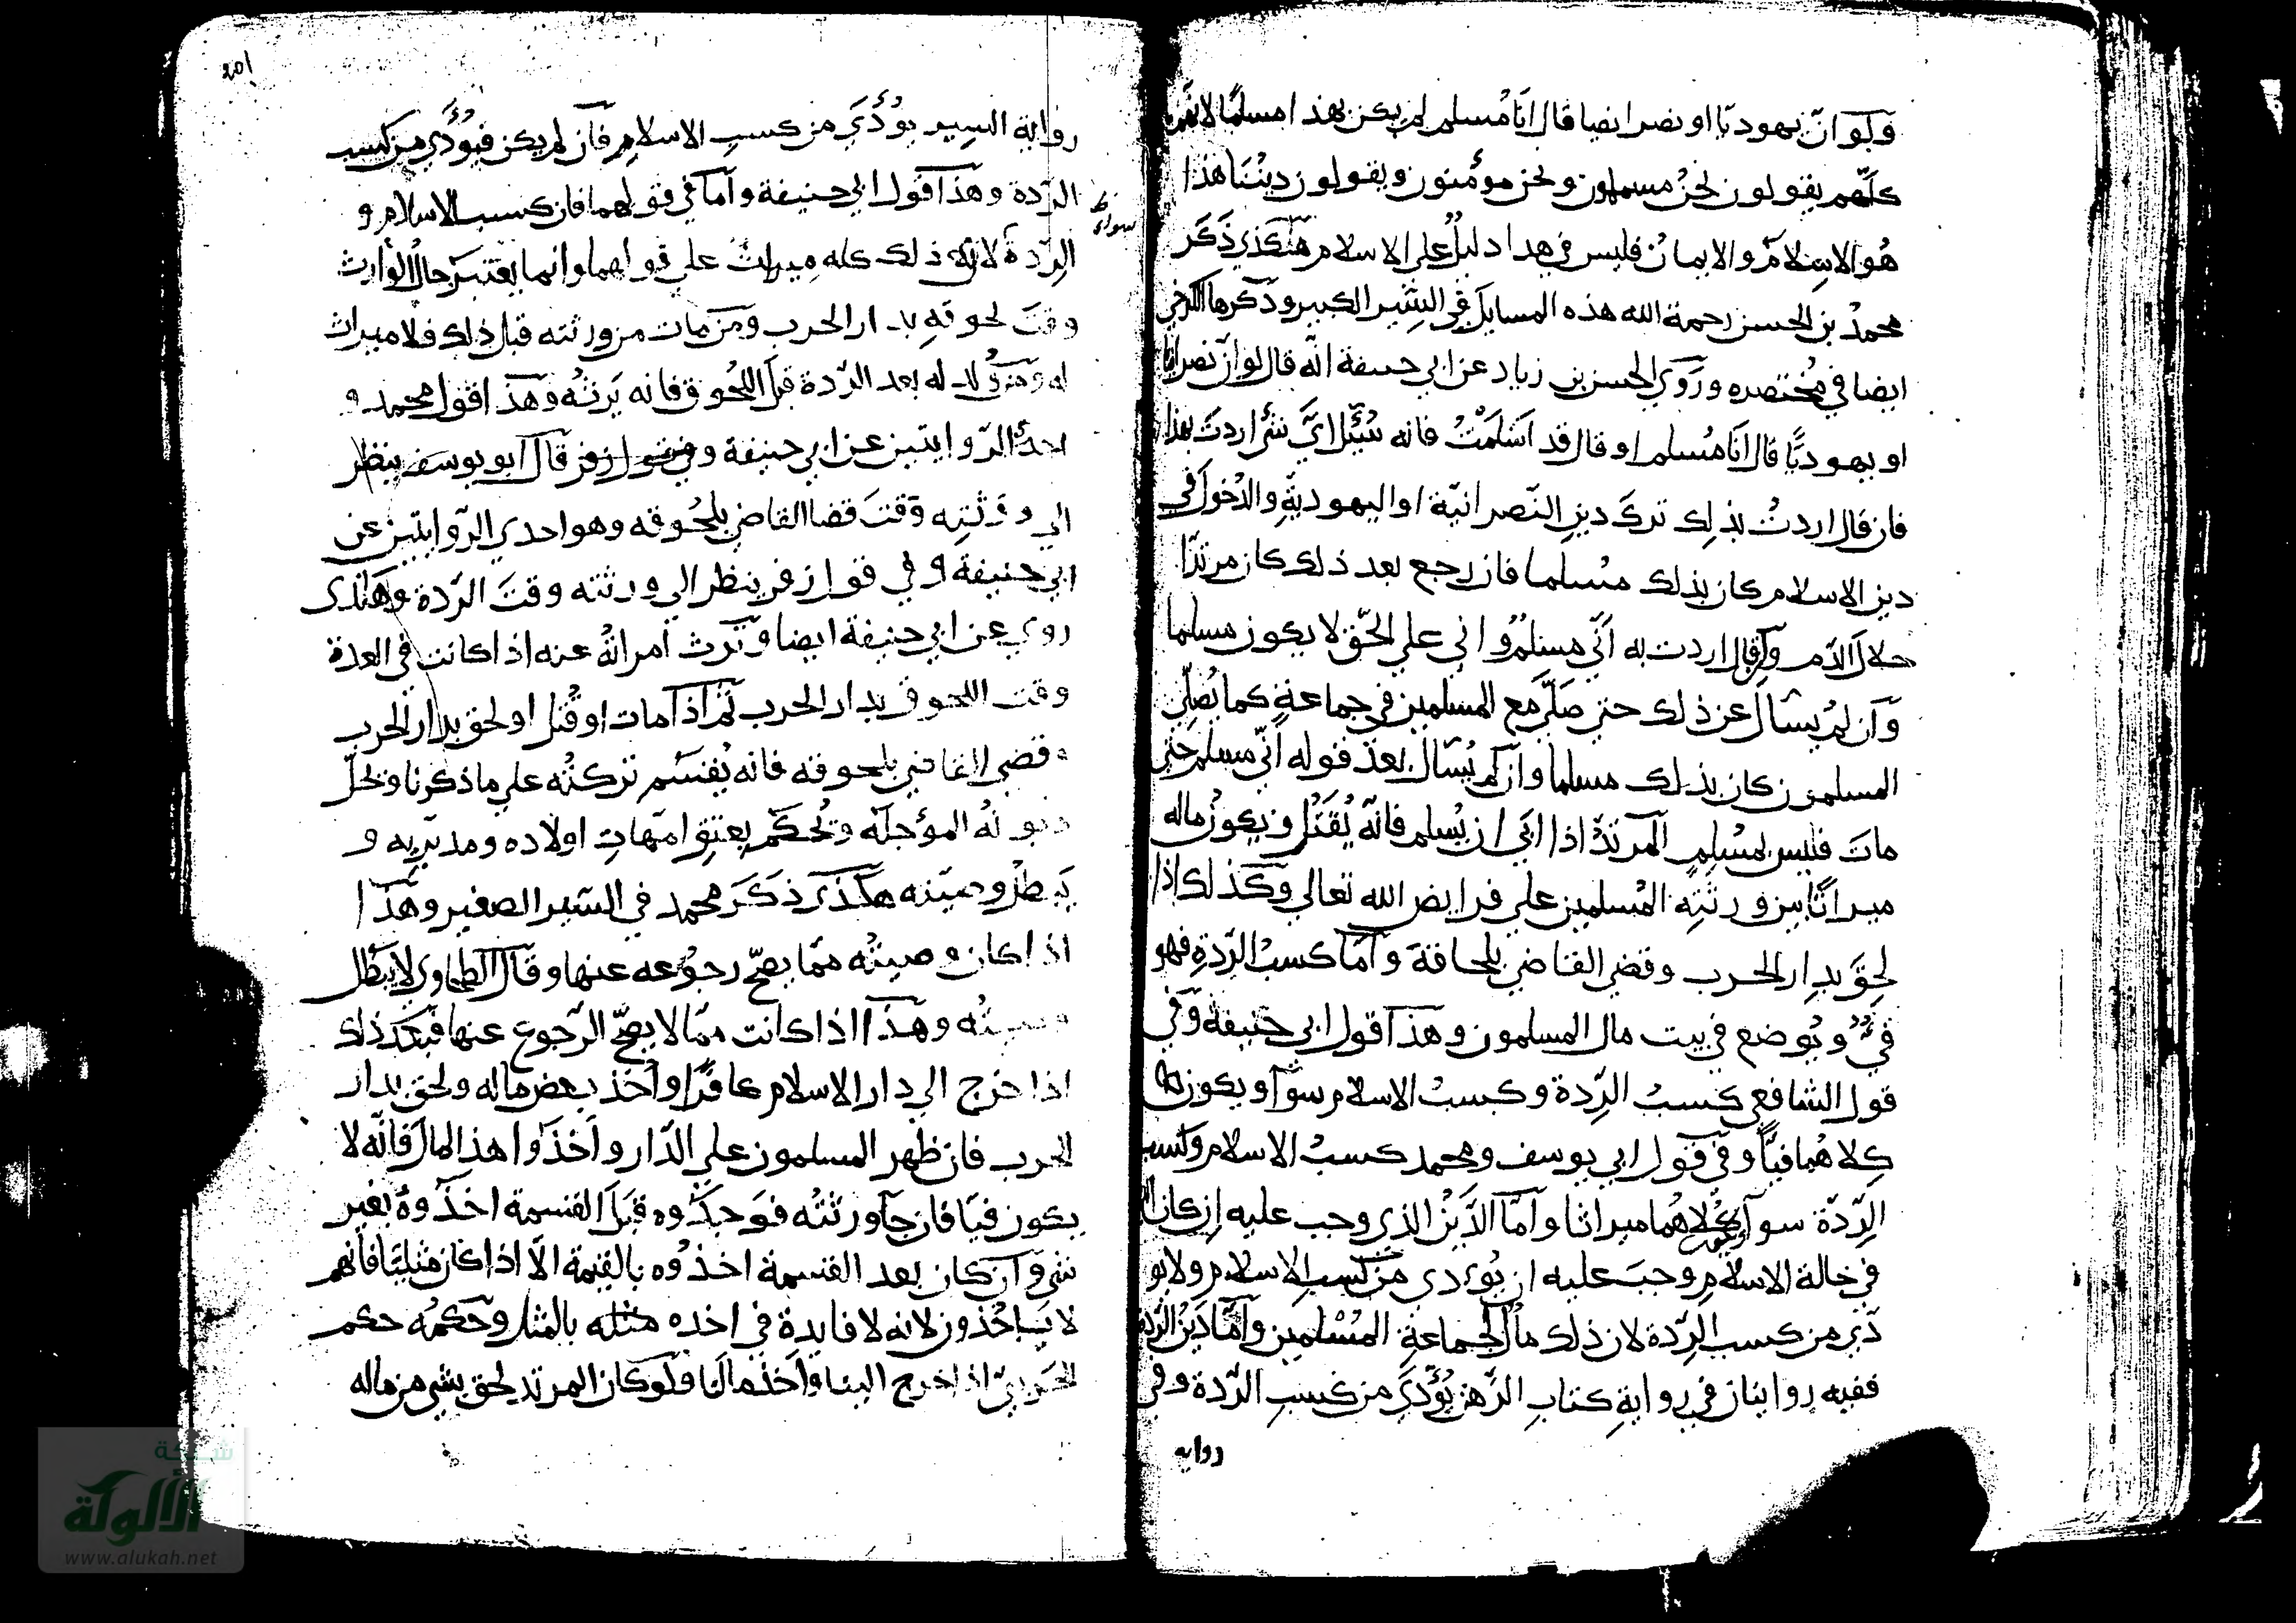 ولو ان يهوديا او نصرانيا قال انا مسلم لم يكن بهذا مسلما لانهم
كلهم يقولون نحن مسملون ونحن مؤمنون ويقولون ديننا هذا
هو الاسلام والايمان فليس في هذا دليل على الاسلام هكذي ذكر
محمد بن الحسن رحمة الله هذه المسايل في السير الكبير وذكرها الكرخي
ايضا في مختصره وروي الحسن بن زياد عن ابي حنيفة انه قال لو ان نصرانيا
او يهوديا قال انا مسلم او قال قد اسلمت فانه سئل اي شئ اردت بهذا
فان قال اردت بذلك ترك دين النصرانية او اليهودية والدخول في
دين الاسلام كان بذلك مسلما فان رجع بعد ذلك كان مرتدا
حلال الدم وان قال اردت به اني مسلم واني علي الحق لا يكون مسلما
وان لم يسال عن ذلك حتي صلي مع المسلمين في جماعة كما يصلي
المسلمون كان بذلك مسلما وان لم يسال بعد قوله اني مسلم حتي
مات فليس بمسلم المرتد اذا ابي ان يسلم فانه يقتل ويكون ماله
ميراثا بين ورثته المسلمين علي فرايض الله تعالي وكذلك اذا
لحق بدار الحرب وقضي القاضي بلحاقة واما كسب الردة فهو
فئ ويوضع في بيت مال المسلمون وهذا قول ابي حنيفة وفي
قول الشافعي كسب الردة وكسب الاسلام سوا ويكون
كلاهما فيا وفي قول ابي يوسف ومحمد كسب الاسلام وكسب
الردة سوا كلاهما ميراثا واما الدين الذي وجب عليه ان كان
في حالة الاسلام وجب عليه ان يؤدي من كسب الاسلام ولا يو
دي من كسب الردة لان ذلك مال لجماعة المسلمين واما دين الردة
ففيه روايتان في رواية كتاب الرهن يؤدي من كسب الردة وفي
روايه
رواية السير يؤدي من كسب الاسلام فان لم يكن فيؤدي من كسب
الردة وهذا قول ابي حنيفة واما في قولهما فان كسب الاسلام و
الردة لان ذلك كله ميراث علي قولهما وانما يعتبر حال الوارث
وقت لحوقه بدار الحرب ومن مات من ورثته قبل ذلك فلا ميراث
له ومن ولد له بعد الردة قبل اللحوق فانه يرثه وهذا قول محمد و
احد الروايتين عن ابي حنيفة وفي قول زفر قال ابو يوسف ينظر
الي ورثته وقت قضا القاضي بلحوقه وهو احدي الروايتين عن
ابي حنيفة و في قول زفر ينظر الي ورثته وقت الردة وهكذى
روي عن ابي حنيفة ايضا وترث امراته عنه اذا كانت في العدة
وقت اللحوق بدار الحرب ثم اذا مات او قتل او لحق بدار الحرب
وقضي القاضي بلحوقه فانه يقسم تركته علي ما ذكرنا وتحل
ديونه المؤجلة ويحكم بعتق امهات اولاده ومدبريه و
يبطل وصيته هكذى ذكر محمد في السير الصغير وهذا
اذا كان وصيته مما يصح رجوعه عنها وقال الطحاوي لا يبطل
وصيته وهذا اذا كانت مما لا يصح الرجوع عنها فبعد ذلك
اذا خرج الي دار الاسلام كافرا واخذ بعض ماله ولحق بدار
الحرب فان ظهر المسلمون علي الدار واخذوا هذا المال فانه لا
يكون فيا فان جا ورثته فوجدوه قبل القسمة اخذوه بغير
شئ وان كان بعد القسمة اخذوه بالقيمة الا اذا كان مثليا فانهم
لا ياخذون لانه لا فايدة في اخذه مثله بالمثل وحكمه حكم
الحربي اذا خرج الينا واخذ مالنا ولو كان المرتد لحق بشئ من ماله
شبكة
الألوكة
www.alukah.net